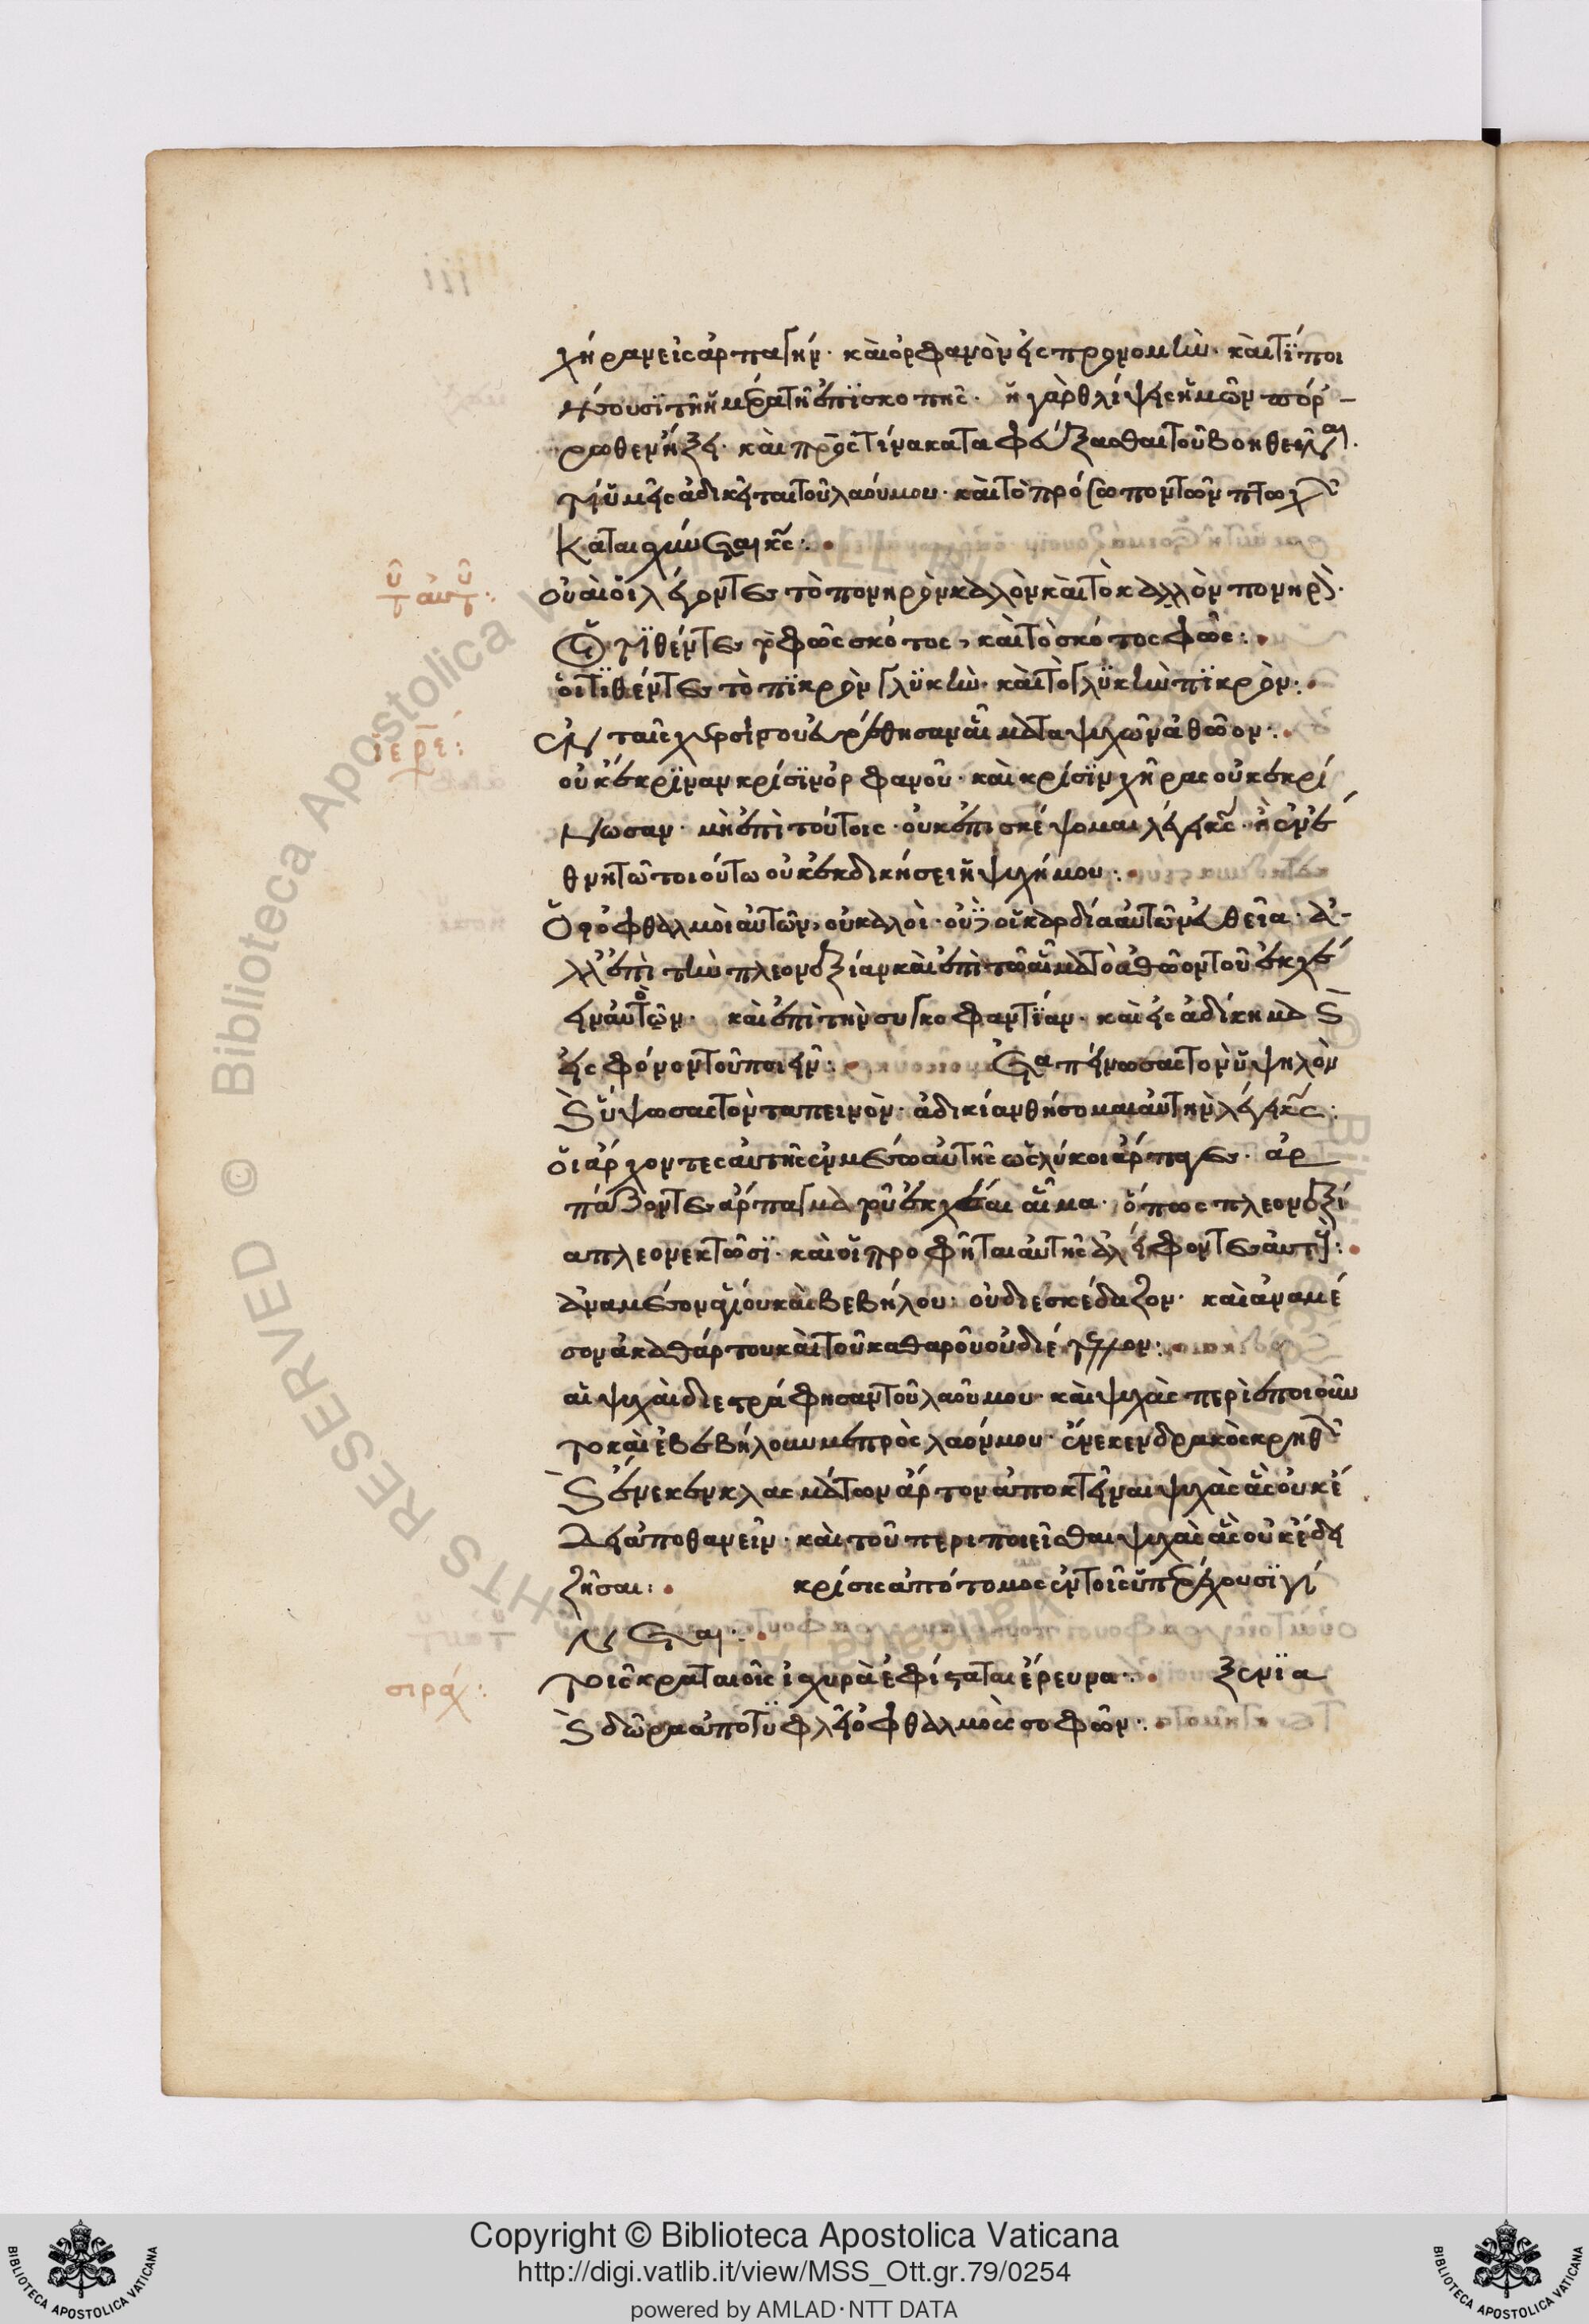 χήραν εἰς ἁρπαγήν· καὶ ὀρφανὸν εἰς προνομὴν· καὶ τί ποι
ήσουσι τῆ ἡμέρα τῆ ἐπισκοπῆς· ἡ γὰρ θλίψις ἡμῶν πόρ-
ρωθεν ἥξει· καὶ πρὸς τίνα καταφεύξασθαι τοῦ βοηθεῖσαι·
ὑμεῖς ἀδικεῖται τοῦ λαόυ μου· καὶ τὸ πρόσωπον τῶν πτωχῶν
καταισχύνεται κς:
οὐαὶ οἱ λέγοντες τὸ πονηρὸν καλὸν καὶ τὸ καλλὸν πονηρὸν·
οἱ τιθέντες τὸ φῶς σκότος, καὶ τὸ σκότος φῶς:
οἱ τιθέντες τὸ πικρὸν γλυκὴν· καὶ τὸ γλυκὴν πικρὸν:
ιερε:
ἐν ταῖς χερσί σου εὑρέθησαν αἵματα ψυχῶν ἀθῶον:
οὐκ ἔκριναν κρίσιν ὀρφανοῦ· καὶ κρίσιν χῆρας οὐκ εκρί
νωσαν· μὴ ἐπὶ τούτοις· οὐκ ἐπισκέψομαι λέγει κς· ἢ ἐν ἔ
θνη τῶ τοιούτω οὐκ εκδικήσει ἡ ψυχή μου:
ὀφθαλμοὶ αὐτῶν, οὐ καλοὶ· καρδία αὐτῶν εὐθεῖα· ἀ-
λλ' ἐπὶ τὴν πλεονεξίαν καὶ ἐπὶ τῶ αἵματο ἀθῶον τοῦ ἐκχέ
ειν αὐτῶν· καὶ ἐπὶ τὴν συγκοφαντίαν· καὶ εἰς ἀδίκημα καὶ
εἰς φόνον τοῦ ποιεῖν: ἐταπείνωσας τὸν ὑψηλὸν
καὶ ὕψωσας τὸν ταπεινὸν· ἀδικίαν θήσομαι αὐτὴν λέγει κς:
οἱ ἄρχοντες αὐτῆς ἐν μέσω αὐτῆς ὡς λύκοι ἅρπαγες· ἁρ
πάζοντες ἅρπαγμα τοῦ ἐκχέαι αἷμα· ὅπως πλεονεξί
α πλεονεκτῶσι· καὶ οἱ προφῆται αὐτῆς ἀλείφοντες αὐτὴν:
ἀναμέσον ἁγίου καὶ βεβήλου· οὐ διεσκέδαζον· καὶ ἀναμέ
σον ἀκαθάρτου καὶ τοῦ καθαροῦ οὐ διέστελλον:
αἱ ψυχαὶ διεστράφησαν τοῦ λαοῦ μου· καὶ ψυχὰς περὶεποιοῦν
το καὶ ἐβεβήλουν με πρὸς λαόν μου· ἕνεκεν δρακὸς κριθῶν
καὶ ἕνεκεν κλασμάτων ἄρτον ἀποκτεῖναι ψυχὰς ἃς οὐκ έ
δει ἀποθανεῖν· καὶ τοῦ περιποιεῖσθαι ψυχὰς ἃς οὐκ έδει
ζῆσαι: κρίσις ἀπότομος ἐν τοῖς ὑπερέχουσι γί
νεται:
σιράχ:
τοῖς κραταιοῖς ἰσχυρὰ ἐφίσταται ἔρευνα: ξενία
καὶ δῶρα ἀποτυφλεῖ ὀφθαλμοὺς σοφῶν:
Copyright © Biblioteca Apostolica Vaticana
http://digi.vatlib.it/view/MSS_Ott.gr.79/0254
powered by AMLAD·NTT DATA
BIBLIOTECA APOSTOLICA VATICANA
BIBLIOTECA APOSTOLICA VATICANA